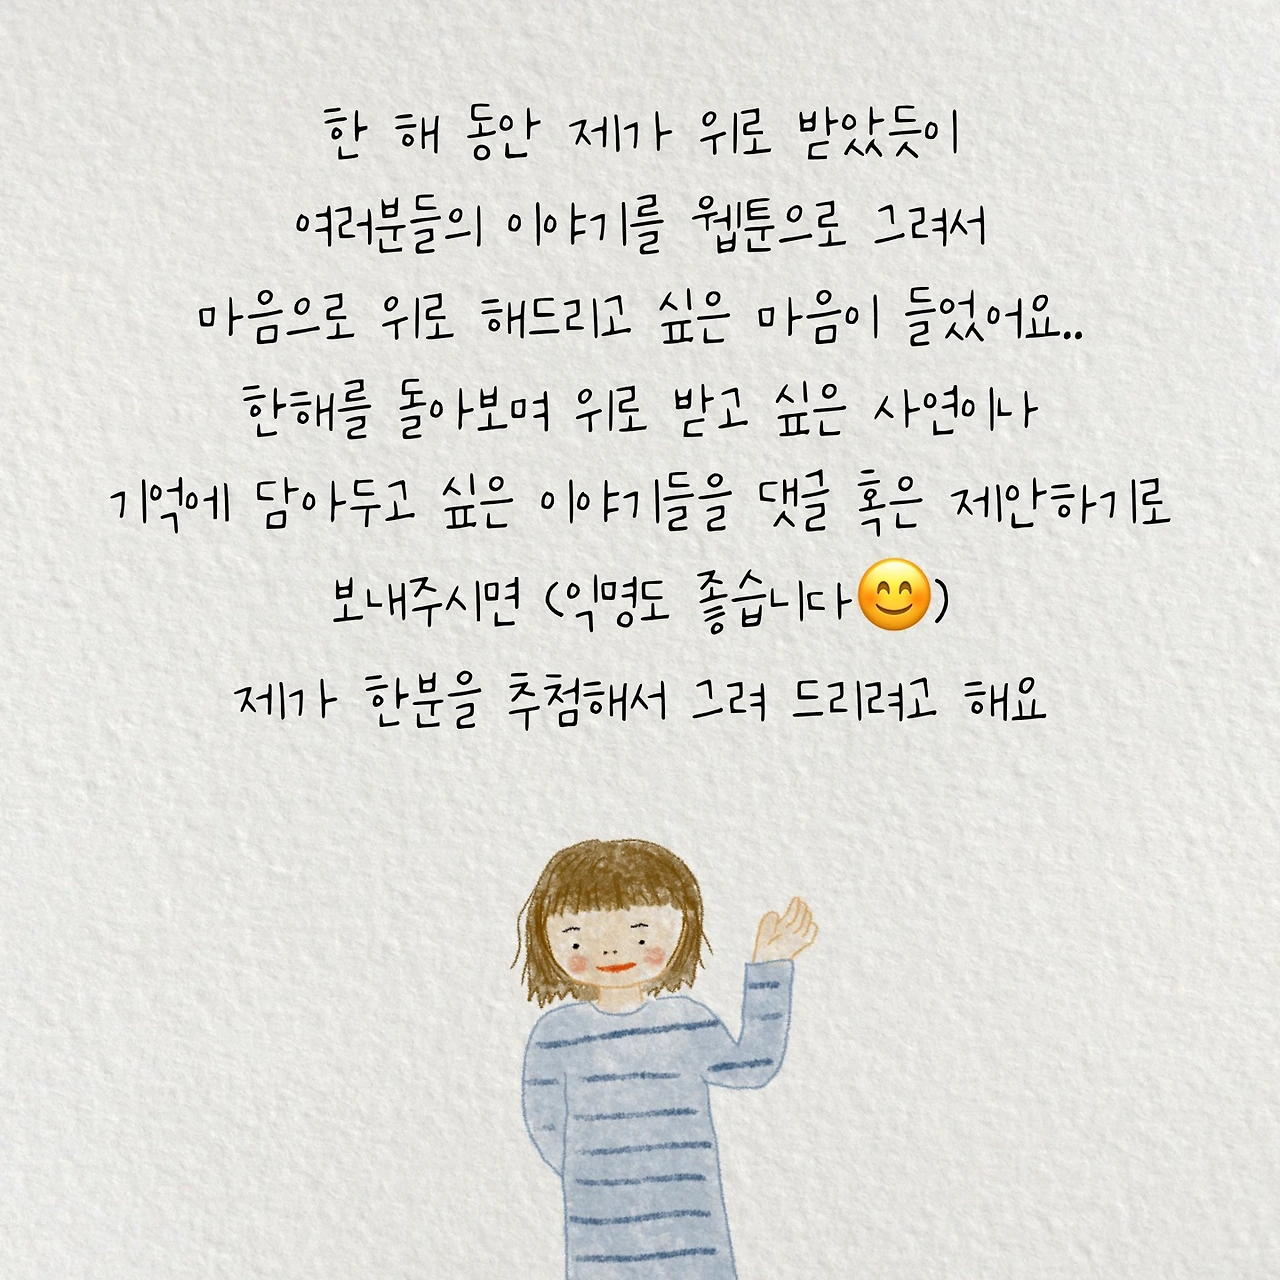 한 해 동안 제가 위로 받았듯이
여러분들의 이야기를 웹툰으로 그려서
마음으로 위로 해드리고 싶은 마음이 들었어요..
한해를 돌아보며 위로 받고 싶은 사연이나
기억에 담아두고 싶은 이야기들을 댓글 혹은 제안하기로
보내주시면 (익명도 좋습니다😊)
제가 한분을 추첨해서 그려 드리려고 해요